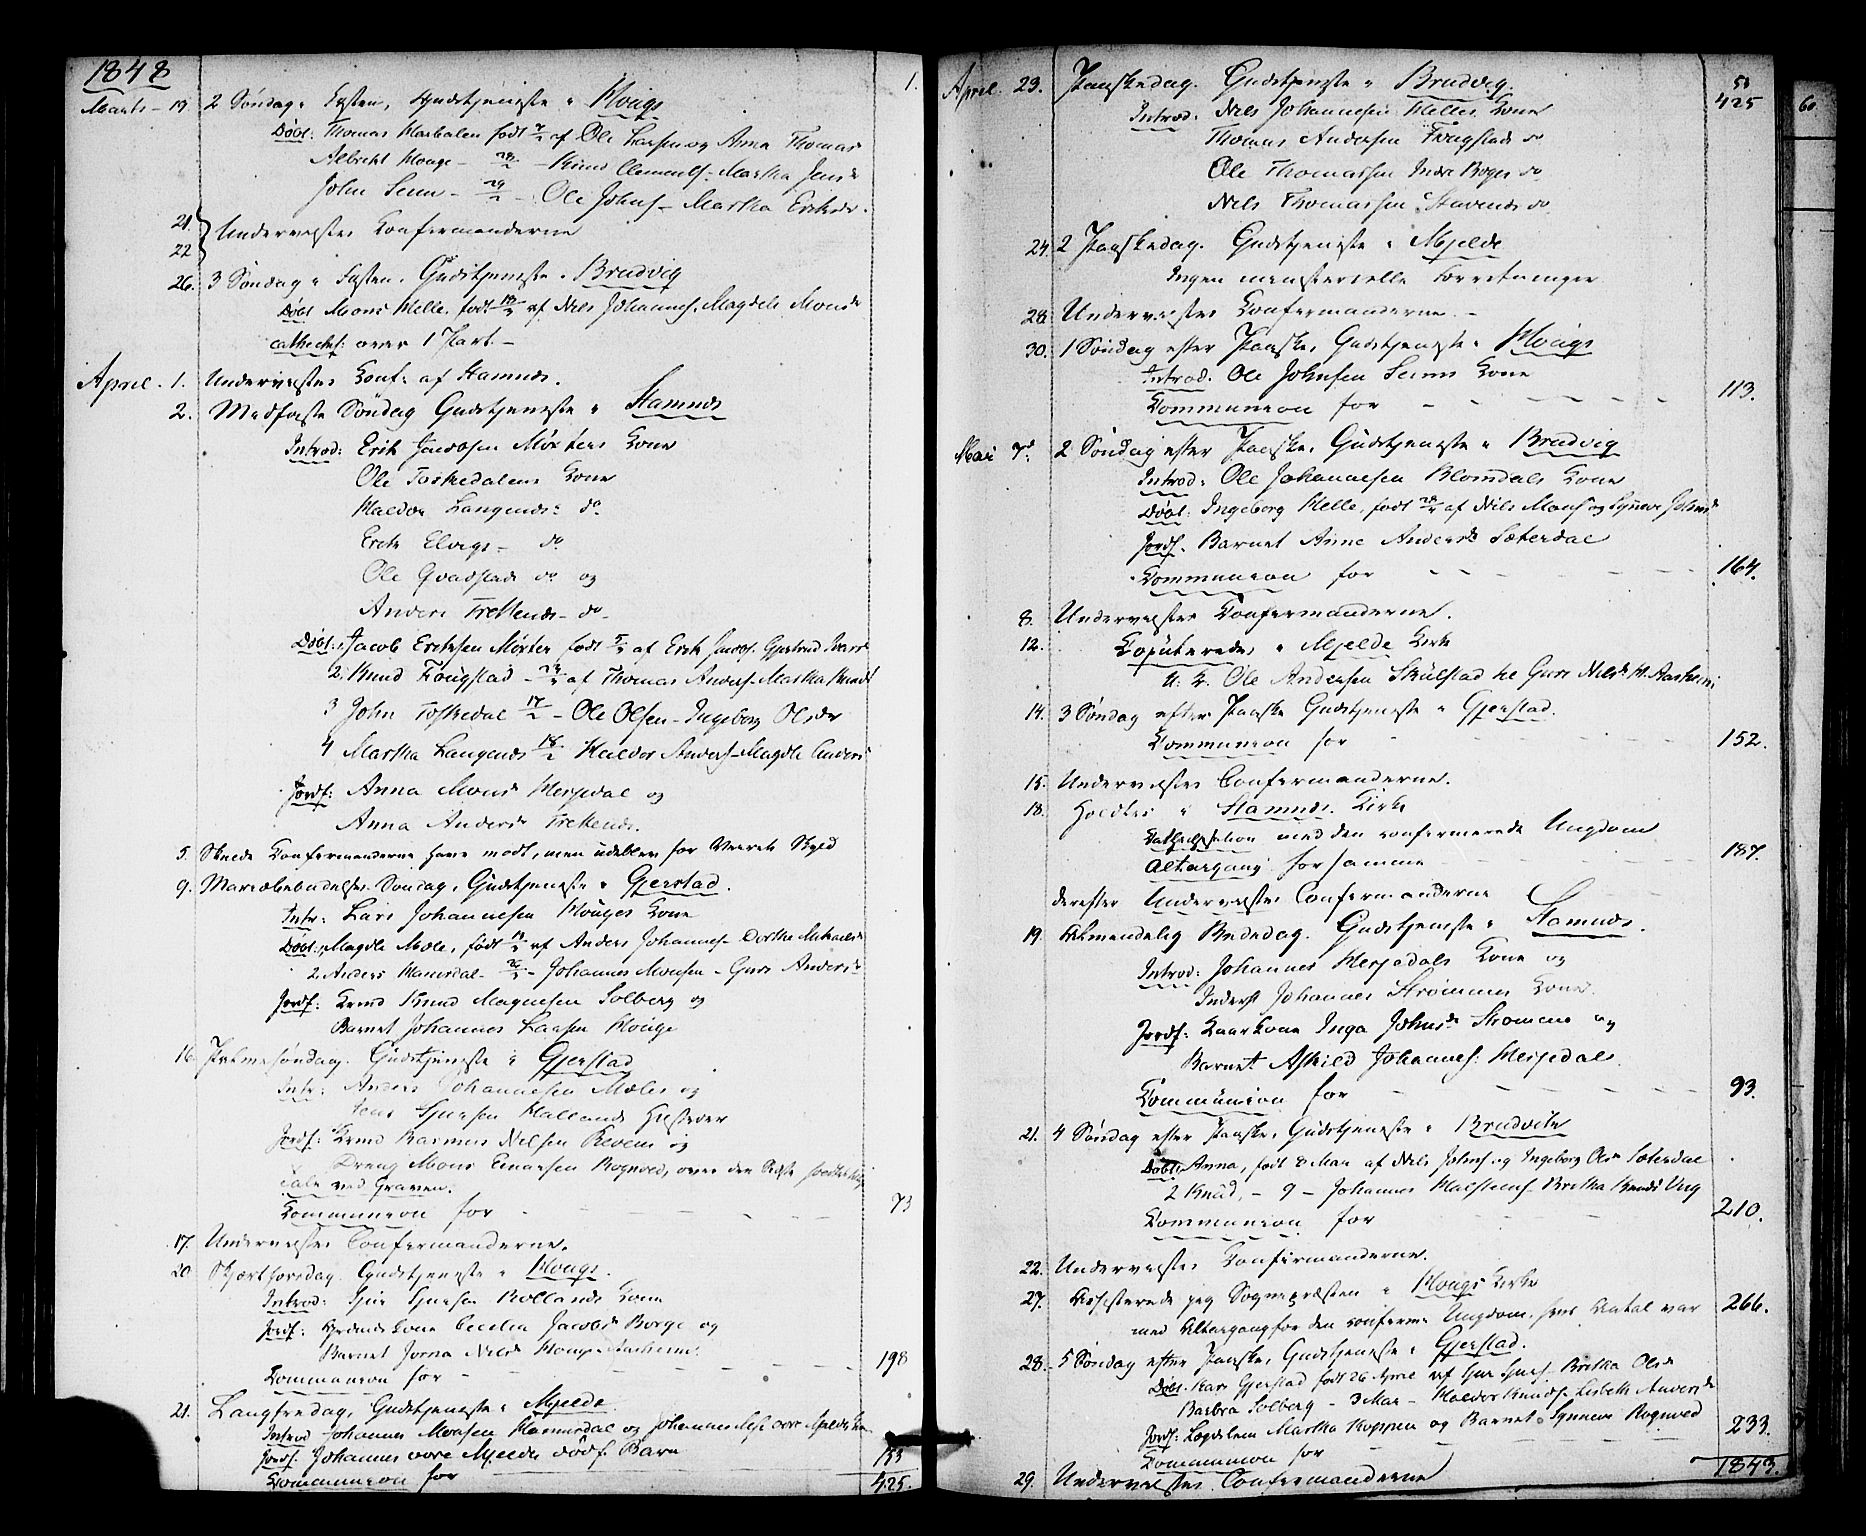 1848
1.
Marts - 19. 2 Søndag i Fasten, Gudstjeneste i Houge
Døbt: Thomas født af Ole Larsen og Anna Thomasd.
Albrecht Houge - Knud Clements. - Martha Jensd.
John Seim - 29/2 - Ole Johns. - Martha Eriksd.
21.
22. Underviistes Confirmanderne
26. 3 Søndag i Fasten, Gudstjeneste i Brudvig
Døbt Mons Helle, født af Niels Johannes. Magdele Monsd.
cathechis: over 1 Part. -
April. 1. Underviistes Conf: af Stamnes.
2. Midfaste Søndag Gudstjeneste i Stamnes
Introd: Erik Jacobsen Mørters Kone
Ole Toskedalens Kone
Haldor Langenes: do.
Erik Elvigs - do.
Ole Qvadstads do. og
Anders Trettenes - do.
Døbt: 1, Jacob Eriksen Mørter født af Erik Jacobs. Gjertrud
2. Knud Fougstad - af Thomas Anders. Martha
3 John Toskedal 17/2 - Ole Olsen - Ingeborg Olsdr
4 Martha Langenes 18/2 Haldor Anders. - Magdle Anders
Jordf: Anna Monsd. Herfedal og
Anna Andersd. Trettenes.
5. Skulde Confirmanderne have mødt, men udebleve for Veirets Skyld
9. Mariæbebudelses Søndag, Gudstjeneste i Gjerstad.
Intr: Lars Johannesen Houges Kone
Døbt: 1, Magdle Mæle, født af Anders Johannes. Dorthe
2. Anders Hamersdal - Johannes Monsen - Guro Andersd.
Jordf: Knud Magnesen Solberg og
Barnet Johannes Larsen Houge
16. Palmesøndag. Gudstjeneste i Gjerstad
Intr: Anders Johannesen Mæles og
Jens Hallands Hustruer
Jordf: Rasmus Nilsen Reveim og
Dreng Mons Einarsen Rognved, over den
Tale ved Graven.
Communion for 73
17. Underviistes Confirmanderne.
20. Skjærthorsdag. Gudstjeneste i Hougs.
Introd: Sjur Sjursen Rollands Kone
Jordf: Kone Cecilia Jacobsd. Borge og
Barnet Jorna Nilsd.
Communion for 198
21. Langfredag, Gudstjeneste i Mjelde.
Introd Johannes Monsen Hamersdal og Johannes
Jordf. Johannes øvre Mjeldes dødf. Barn
Communion for 153
425.
53
April. 23. Paaskedag. Gudstjeneste i Brudvig. 425
Introd: Nils Johannesen Helles Kone
Thomas Andersen Fougstads do
Ole Thomassen Indre Boges do.
Nils Thomassen Stavenes do.
24. 2 Paaskedag. Gudstjeneste i Mjelde
Ingen ministerielle Forretninger
28. Underviistes Confirmanderne. -
30. 1 Søndag efter Paaske, Gudstjeneste i Hougs
Introd. Ole Johnsen Seims Kone
Communion for 113.
Mai 7de. 2 Søndag efter Paaske, Gudstjeneste i Brudvig
Introd: Ole Johannesen Blomdals Kone
Døbt: Ingeborg Helle, født af Nils Mons. og Synneve Johnsd
Jordf. Barnet Anne Andersd. Sæterdal
Communion for 164.
8. Underviistes Confirmanderne.
12. Copuleredes i Mjelde Kirke
U. K. Ole Andersen Skulstad og Guro Nilsd.
14. 3 Søndag efter Paaske Gudstjeneste i Gjerstad.
Communion for 152.
15. Underviistes Confirmanderne.
18. Holdtes i Stamnes Kirke
Cathechisation med den confirmerede Ungdom
Altergang for samme 187.
derefter Underviistes Confirmanderne
19. Almindelig Bededag. Gudstjeneste i Stamnes.
Introd: Johannes Herfedals Kone og
Inderst Johannes Strømmes Kone.
Jordf: Kaarkone Inga Johnsd. Strømme og
Barnet Askild Johannes: Herfedal.
Communion for 93.
21. 4 Søndag efter Paaske, Gudstjeneste i Brudvik
Døbt: 1, Anna, født 8 Mai af Nils Johns. og Ingeborg Olsd. Sæterdal
2 Knud, - 9 - Johannes Britha Knudsd
Communion for 210.
22. Underviistes Confirmanderne.
27. Assisterede jeg Sognepræsten i Hougs Kirke
med Altergang for den confirm: Ungdom, hvis Antal var 266.
28. 5 Søndag efter Paaske, Gudstjeneste i Gjerstad.
Døbt. Gjerstad født 26 April af Sjur Sjurs. Britha Olsd
Barbra Solberg - 3 Mai - Haldor Knuds. Lisbeth Andersd
Jordf: Lægdslem Martha Koppen og Barnet Synneve Rognved
Communion for 233.
1843.
29. Underviistes Confirmanderne
60